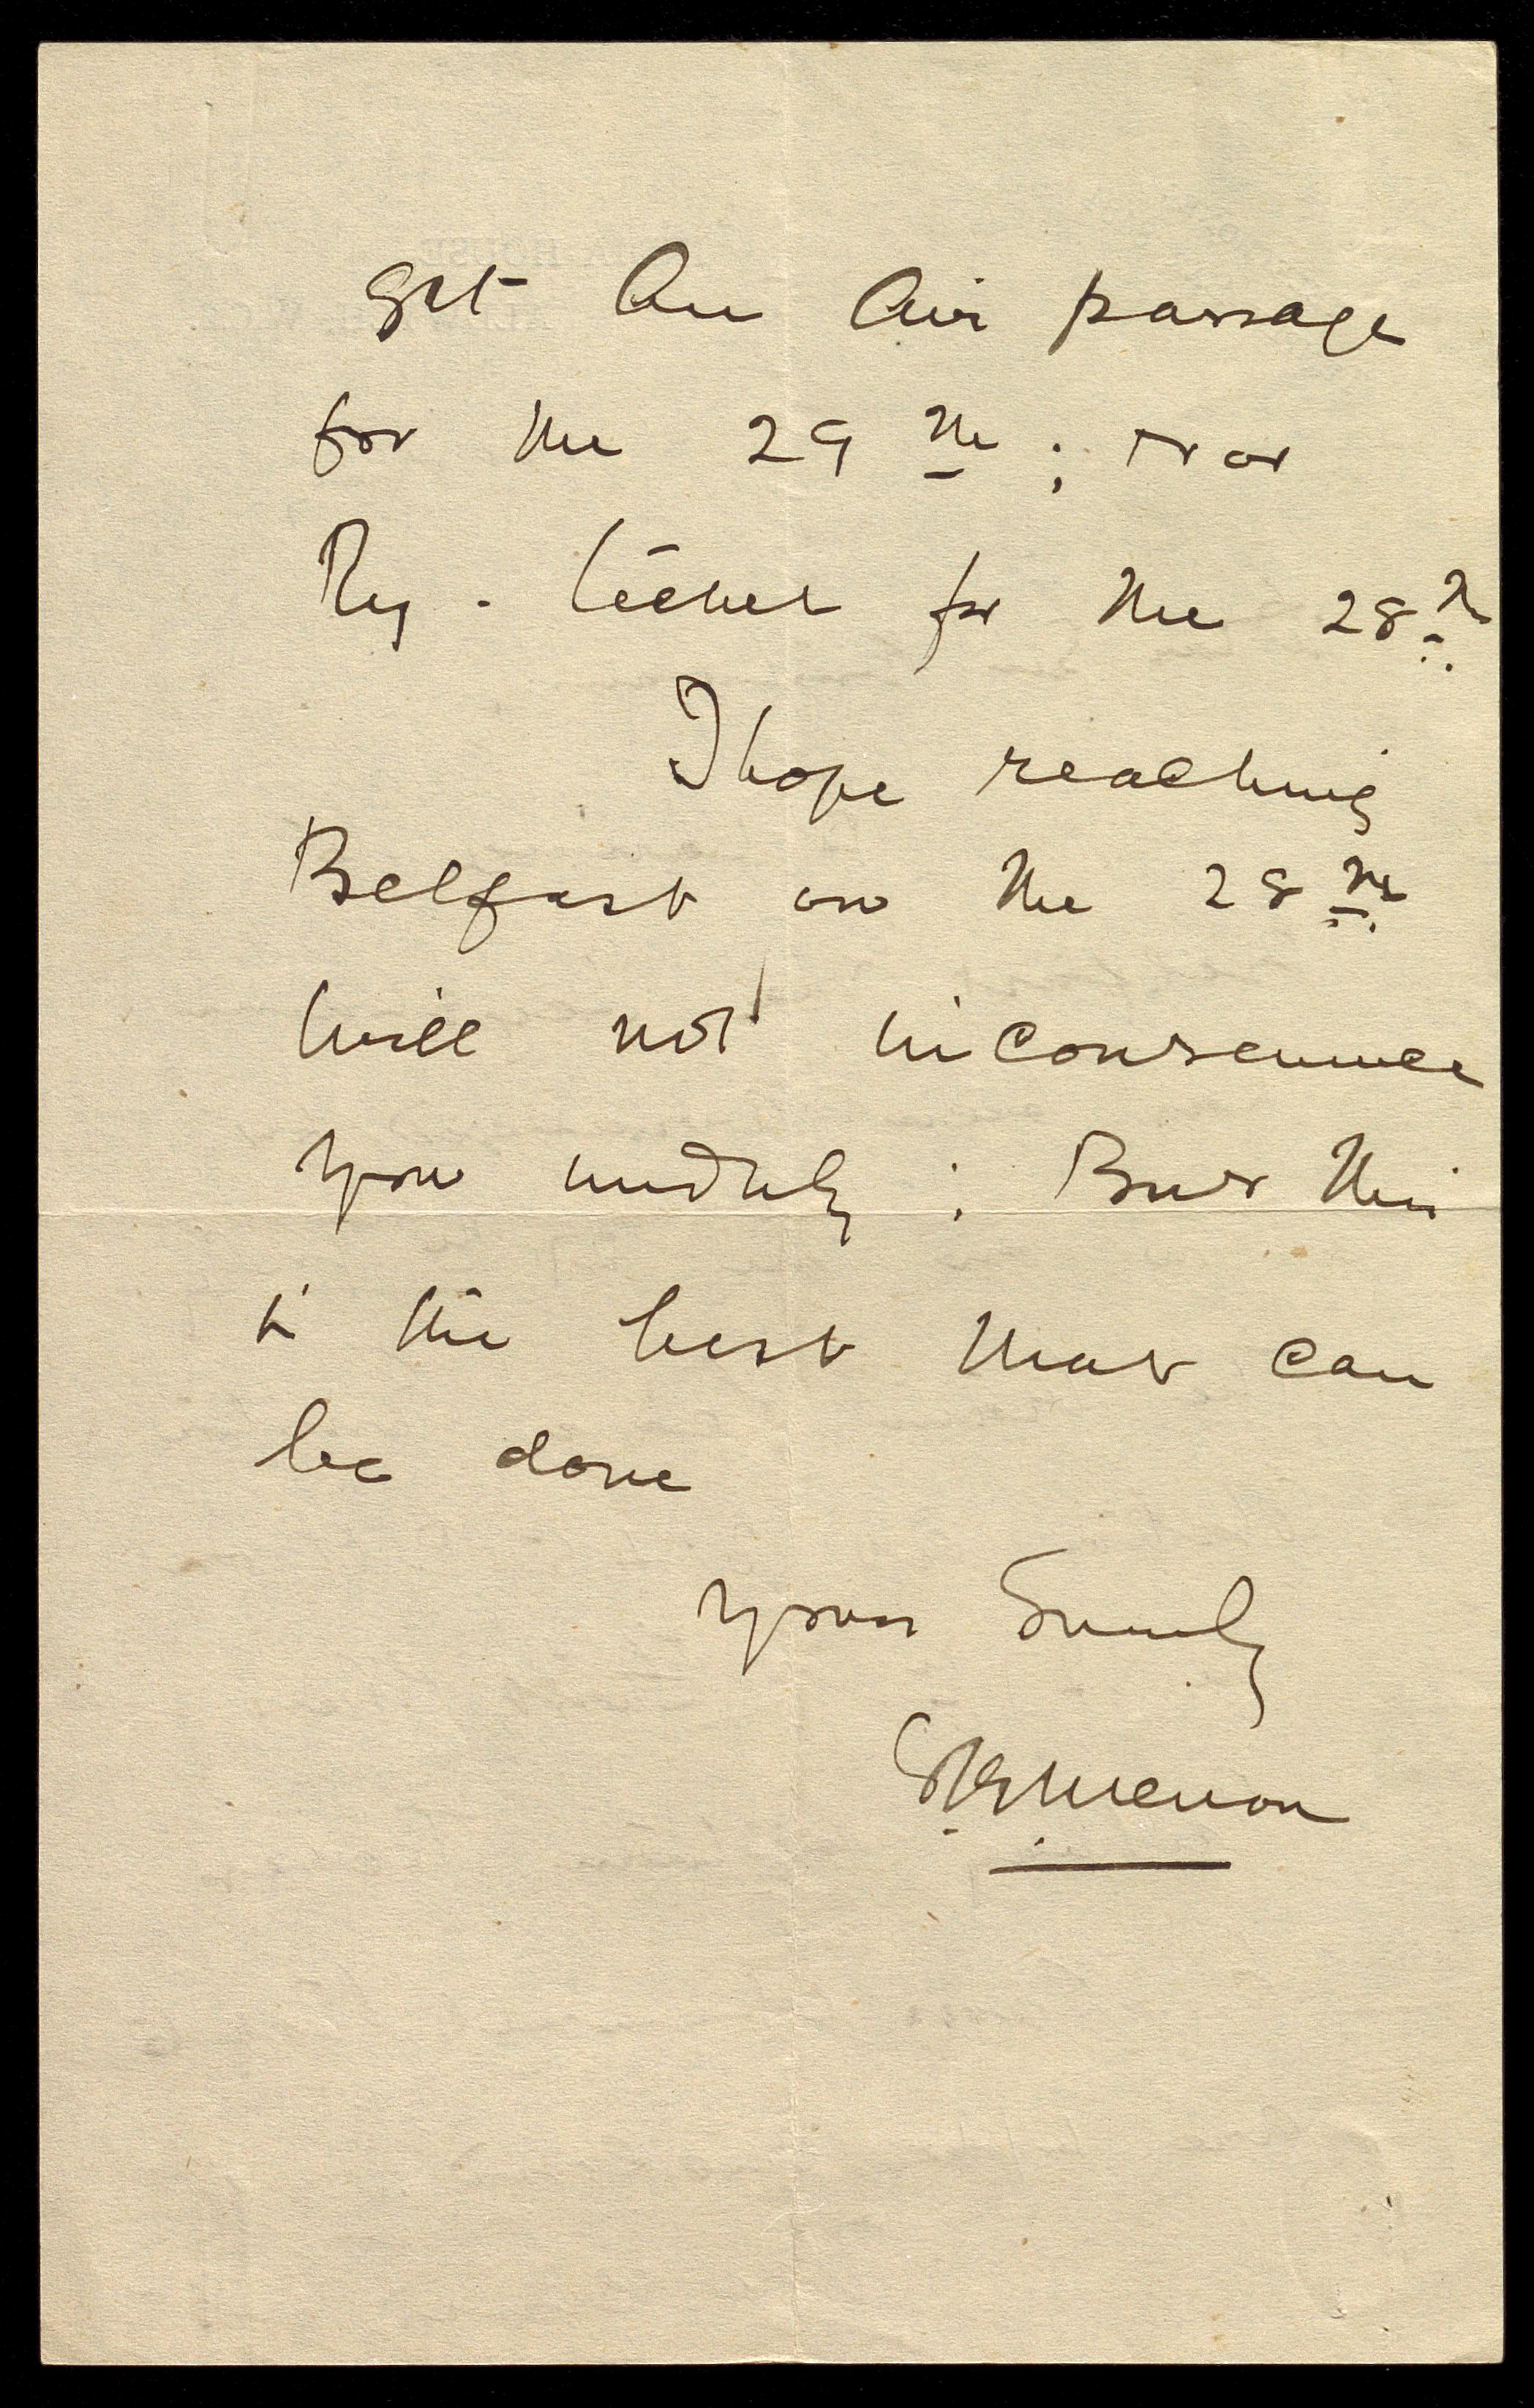 get an air passage
for the 29th; or
Ry. ticket for the 28th
I hope reaching
Belfast on the 28th
will not inconvenience
you unduly; But this
is the best that can
be done
yours Sincerely
Menon